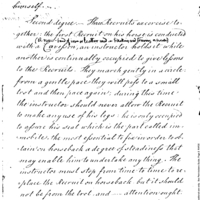 himself.
Second degree. Thus Recruits accoresse to-
gether: the first Recruit on his horse is conducted
with a Caveson, an instructor holds it while
another is continually occupied to give lessons
to the Recruits. They march gently in a circle
from a gentle pace, they will pass to a small
trot and then pace again; during this time
the instructor should never allow the Recruit
to make any use of his legs: he is only occupied
to assure his seat which is the part called im-
mobile, the most essential to fix in order to ob-
tain on horseback a degree of steadiness that
may enable him to undertake any thing. The
instructor must stop from time to time to re-
place the Recruit on horseback but it should
not be from the trot, and attention ought